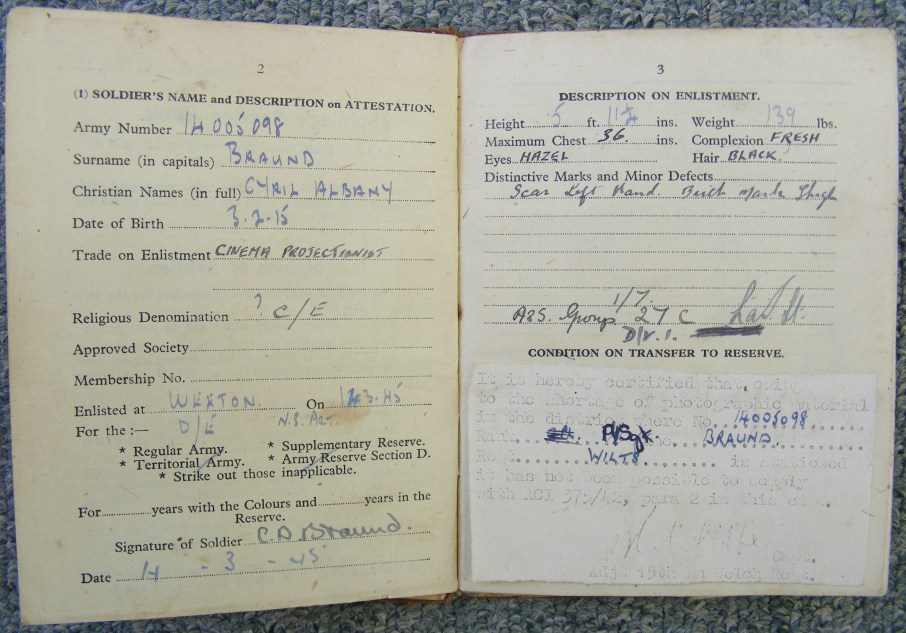 2
(1) SOLDIER'S NAME and DESCRIPTION on ATTESTATION.
Army Number 14005098
Surname (in capitals) BRAUND
Christian Names (in full) CYRIL ALBANY
Date of Birth 3.2.15
Trade on Enlistment CINEMA PROJECTIONIST
Religious Denomination ? C/E
Approved Society
Membership No.
Enlisted at On
For the :— D/E N.S. Act.
* Regular Army. * Supplementary Reserve.
* Territorial Army. * Army Reserve Section D.
* Strike out those inapplicable.
For years with the Colours and years in the
Reserve.
Signature of Soldier Braund.
Date 14 - 3 - 45
3
DESCRIPTION ON ENLISTMENT.
Height 5 ft. 11 ins. Weight 139 lbs.
Maximum Chest 36. ins. Complexion FRESH
Eyes HAZEL Hair BLACK.
Distinctive Marks and Minor Defects
Scar Left Hand. Birth Mark Thigh
1/7.
A&S. Group 27 C
CONDITION ON TRANSFER TO RESERVE.
It is hereby certified that owing
to the shortage of photographic material
in the district where No. 14005098
Rank P/Sgt BRAUND.
Regt. WILTS is stationed
it has not been possible to comply
with ACI 375/42, para 2 in this case.
Capt.
Adjt 19th Bn Welch Regt.